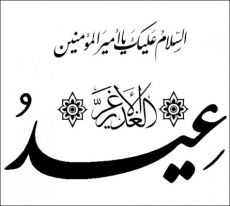 السلام علیک یا امیرالمؤمنین
عید
الغدیر الأغر